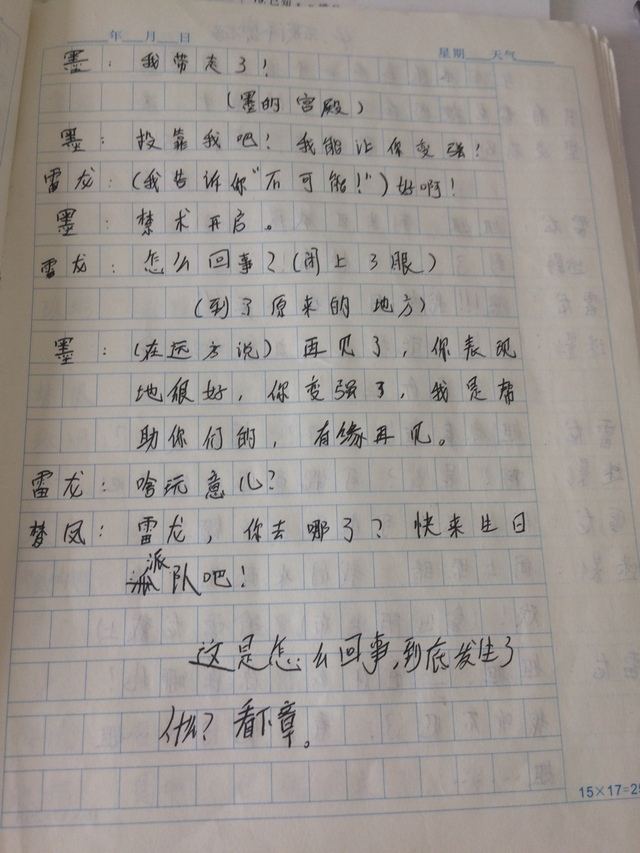 年 月 日
星期 天气
墨：我带走了！
（墨的宫殿）
墨：投靠我吧！我能让你变强！
雷龙：（我告诉你“不可能！”）好啊！
墨：禁术开启。
雷龙：怎么回事？（闭上了眼）
（到了原来的地方）
墨：（在远方说）再见了，你表现
地很好，你变强了，我是帮
助你们的，有缘再见。
雷龙：啥玩意儿？
梦凤：雷龙，你去哪了？快来生日
派队吧！
这是怎么回事，到底发生了
什么？看下章。
15×17=25